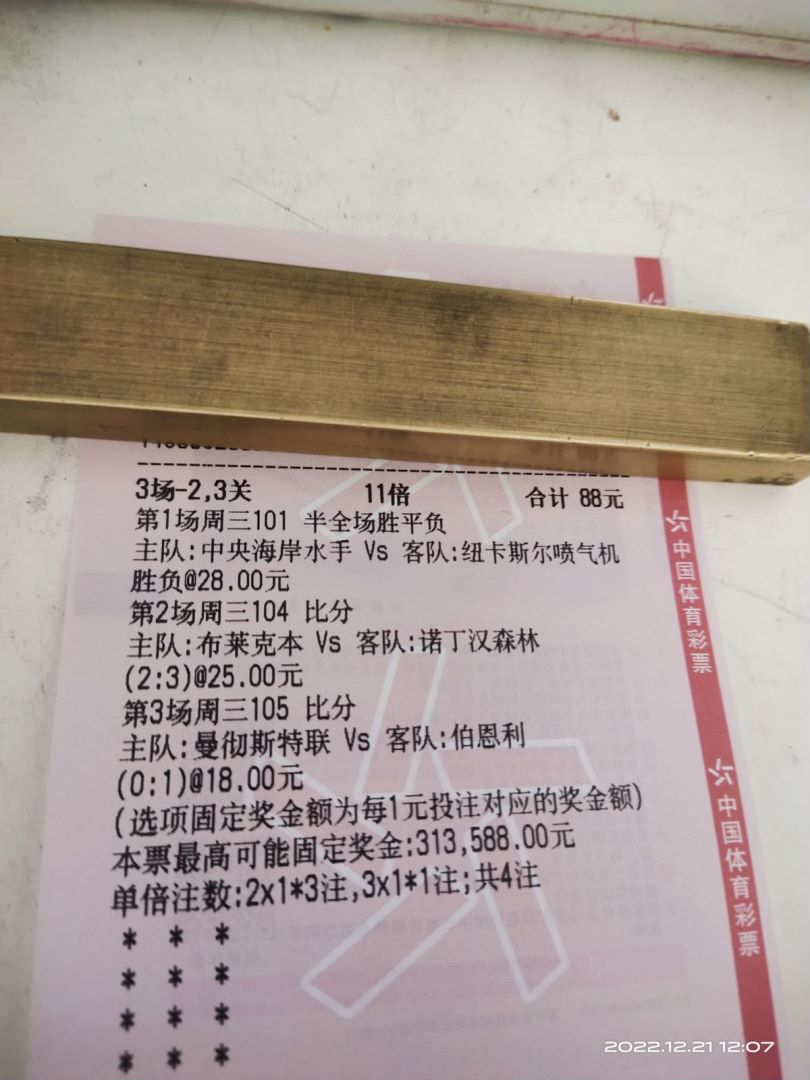 3场-2,3关 11倍 合计 88元
第1场周三101 半全场胜平负
主队:中央海岸水手 Vs 客队:纽卡斯尔喷气机
胜负@28.00元
第2场周三104 比分
主队:布莱克本 Vs 客队:诺丁汉森林
(2:3)@25.00元
第3场周三105 比分
主队:曼彻斯特联 Vs 客队:伯恩利
(0:1)@18.00元
(选项固定奖金额为每1元投注对应的奖金额)
本票最高可能固定奖金:313,588.00元
单倍注数:2x1*3注,3x1*1注;共4注
* * *
* * *
* * *
* * *
中国体育彩票
中国体育彩票
2022.12.21 12:07